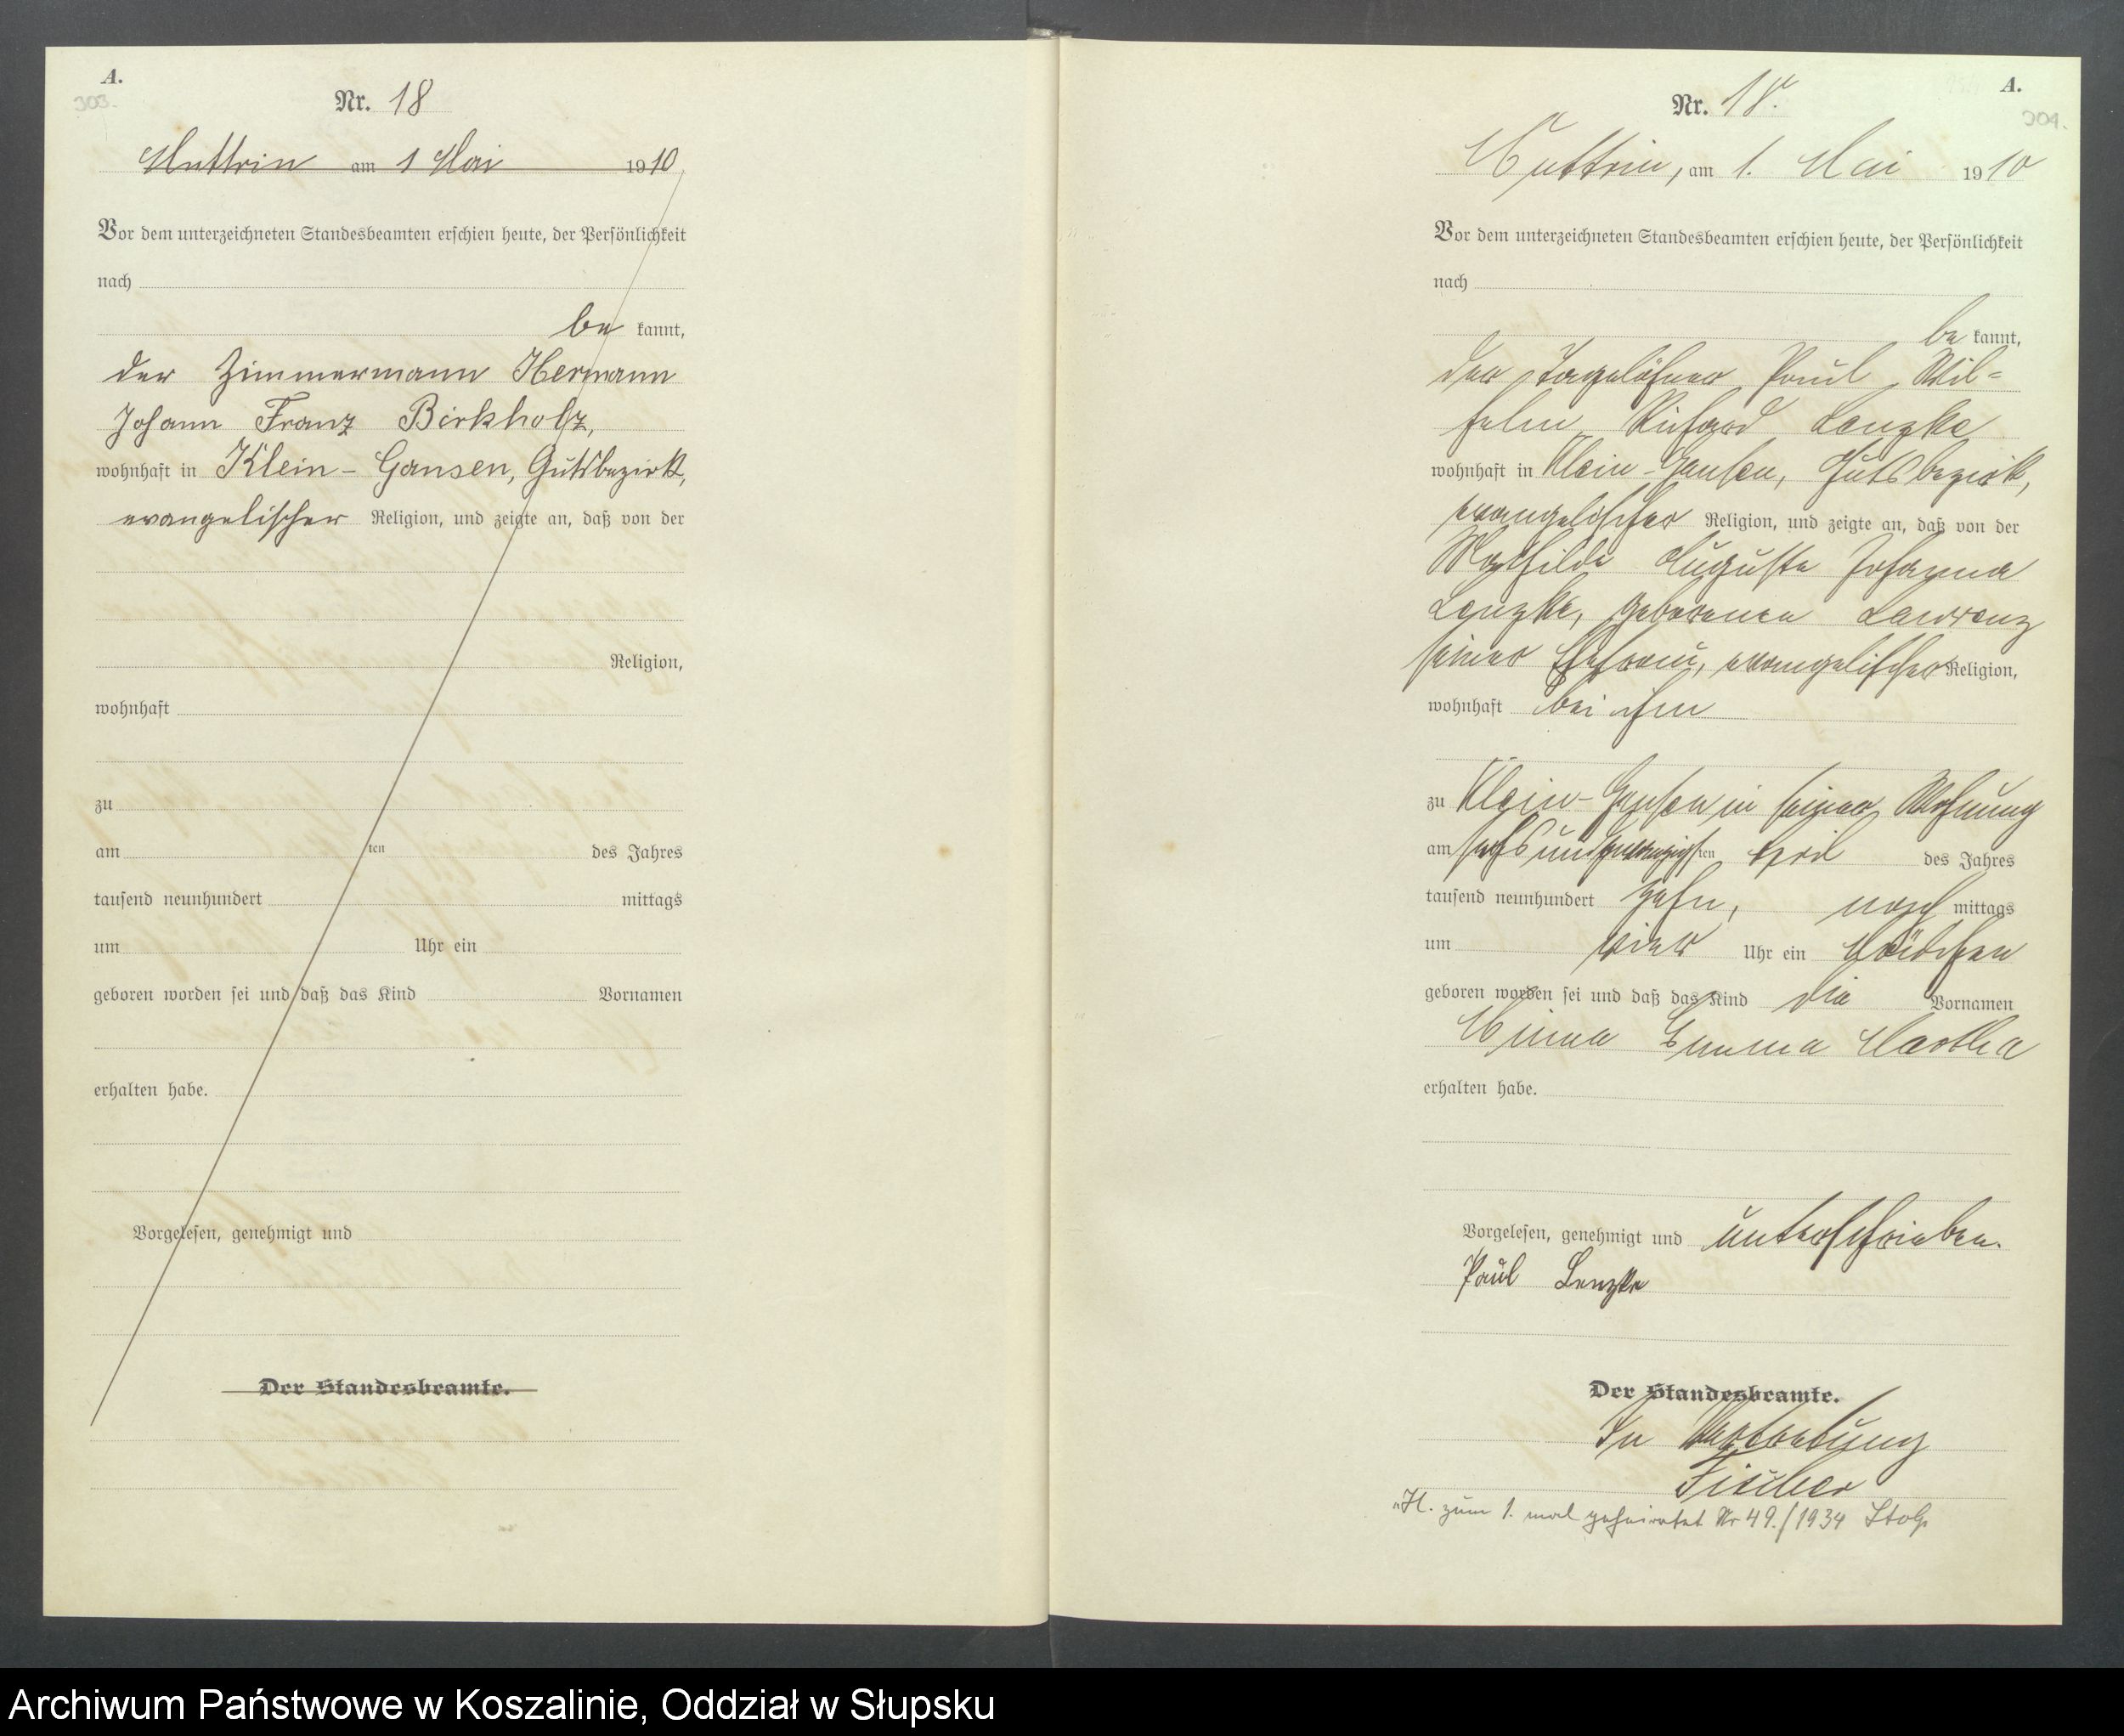 A.
303.
Nr. 18
Muttrin am 1 Mai 1910
Vor dem unterzeichneten Standesbeamten erschien heute, der Persönlichkeit
nach
be kannt,
der Zimmermann Hermann
Johann Franz Birkholz,
wohnhaft in Klein-Gansen, Gutsbezirk,
evangelischer Religion, und zeigte an, daß von der
Religion,
wohnhaft
zu
am ten des Jahres
tausend neunhundert mittags
um Uhr ein
geboren worden sei und daß das Kind Vornamen
erhalten habe.
Vorgelesen, genehmigt und
Der Standesbeamte.
A.
304.
Nr. 18.
Muttrin, am 1. Mai 1910
Vor dem unterzeichneten Standesbeamten erschien heute, der Persönlichkeit
nach
be kannt,
der Tagelöhner Paul Wil-
helm Richard Lenzke
wohnhaft in Klein-Gansen, Gutsbezirk,
evangelischer Religion, und zeigte an, daß von der
Mathilde Auguste Johanna
Lenzke, geborenen Lawrenz
seiner Ehefrau, evangelischer Religion,
wohnhaft bei ihm
zu Klein-Gansen in seiner Wohnung
am sechsundzwanzigsten April des Jahres
tausend neunhundert zehn, nach mittags
um vier Uhr ein Mädchen
geboren worden sei und daß das Kind die Vornamen
Minna Emma Martha
erhalten habe.
Vorgelesen, genehmigt und unterschrieben.
Paul Lenzke
Der Standesbeamte.
In Vertretung
Fischer
H. zum 1. mal geheiratet Nr 49./1934 Stolp
Archiwum Państwowe w Koszalinie, Oddział w Słupsku